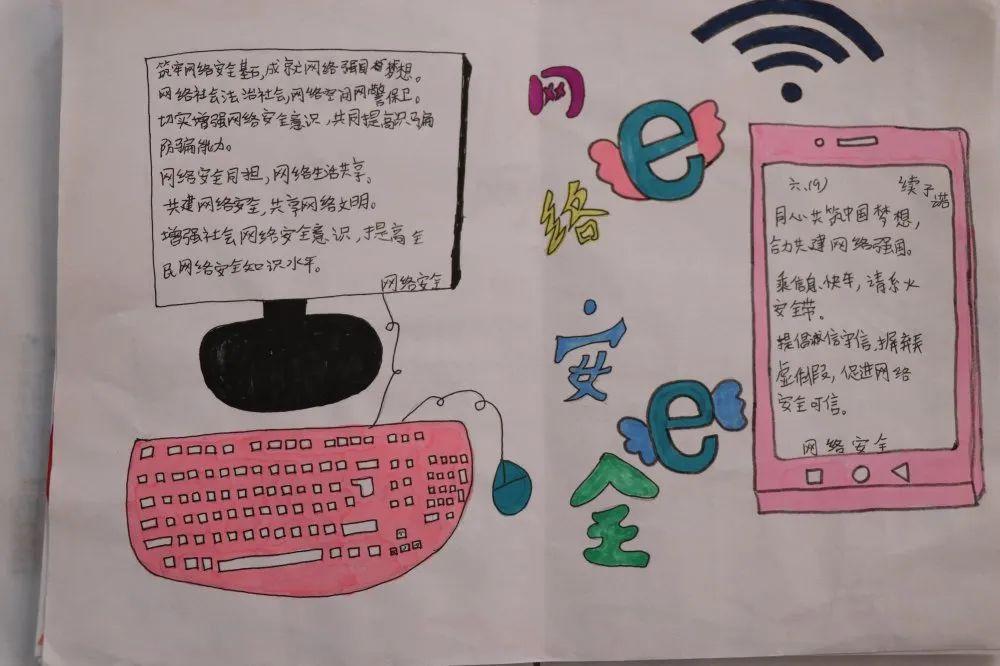 筑牢网络安全基石,成就网络强国梦想。
网络社会法治社会,网络空间网警保卫。
切实增强网络安全意识,共同提高识骗
防骗能力。
网络安全同担,网络生活共享。
共建网络安全,共享网络文明。
增强社会网络安全意识,提高全
民网络安全知识水平。
网络安全
网络·安全
e
e
六、(9) 续子诺
同心共筑中国梦想,
合力共建网络强国。
乘信息快车,请系火
安全带。
提倡诚信守信,摒弃
虚假,促进网络
安全可信。
网络安全